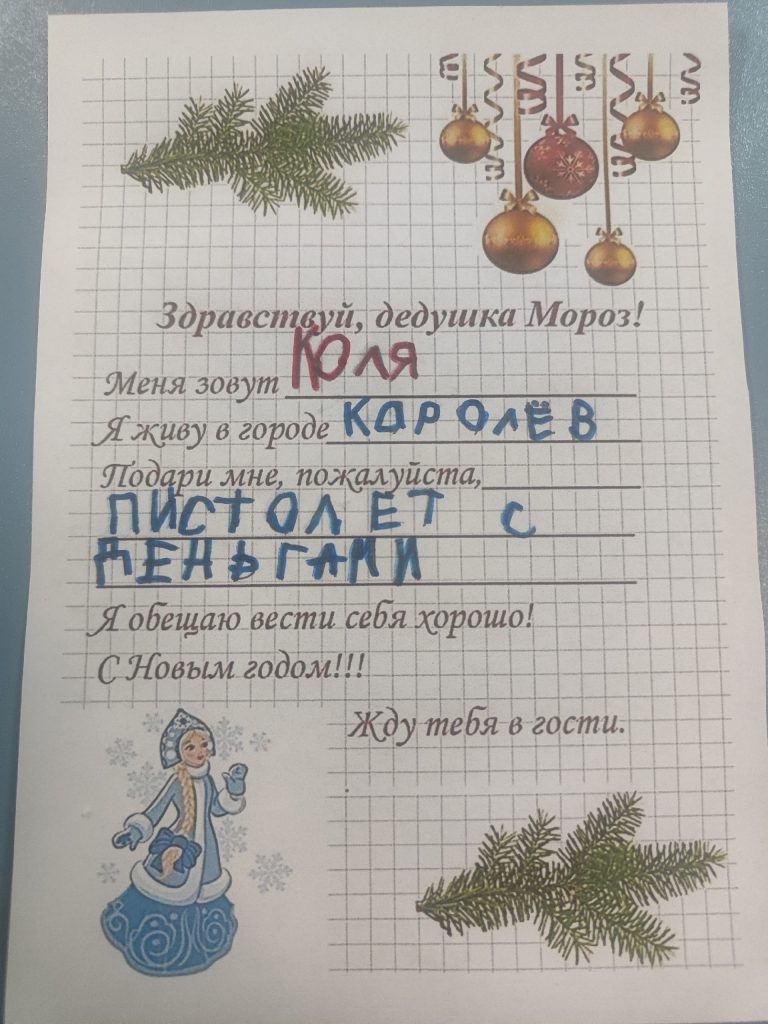 Здравствуй, дедушка Мороз!
Меня зовут Коля
Я живу в городе КОРОЛЁВ
Подари мне, пожалуйста,
ПИСТОЛЕТ С
ДЕНЬГАМИ
Я обещаю вести себя хорошо!
С Новым годом!!!
Жду тебя в гости.